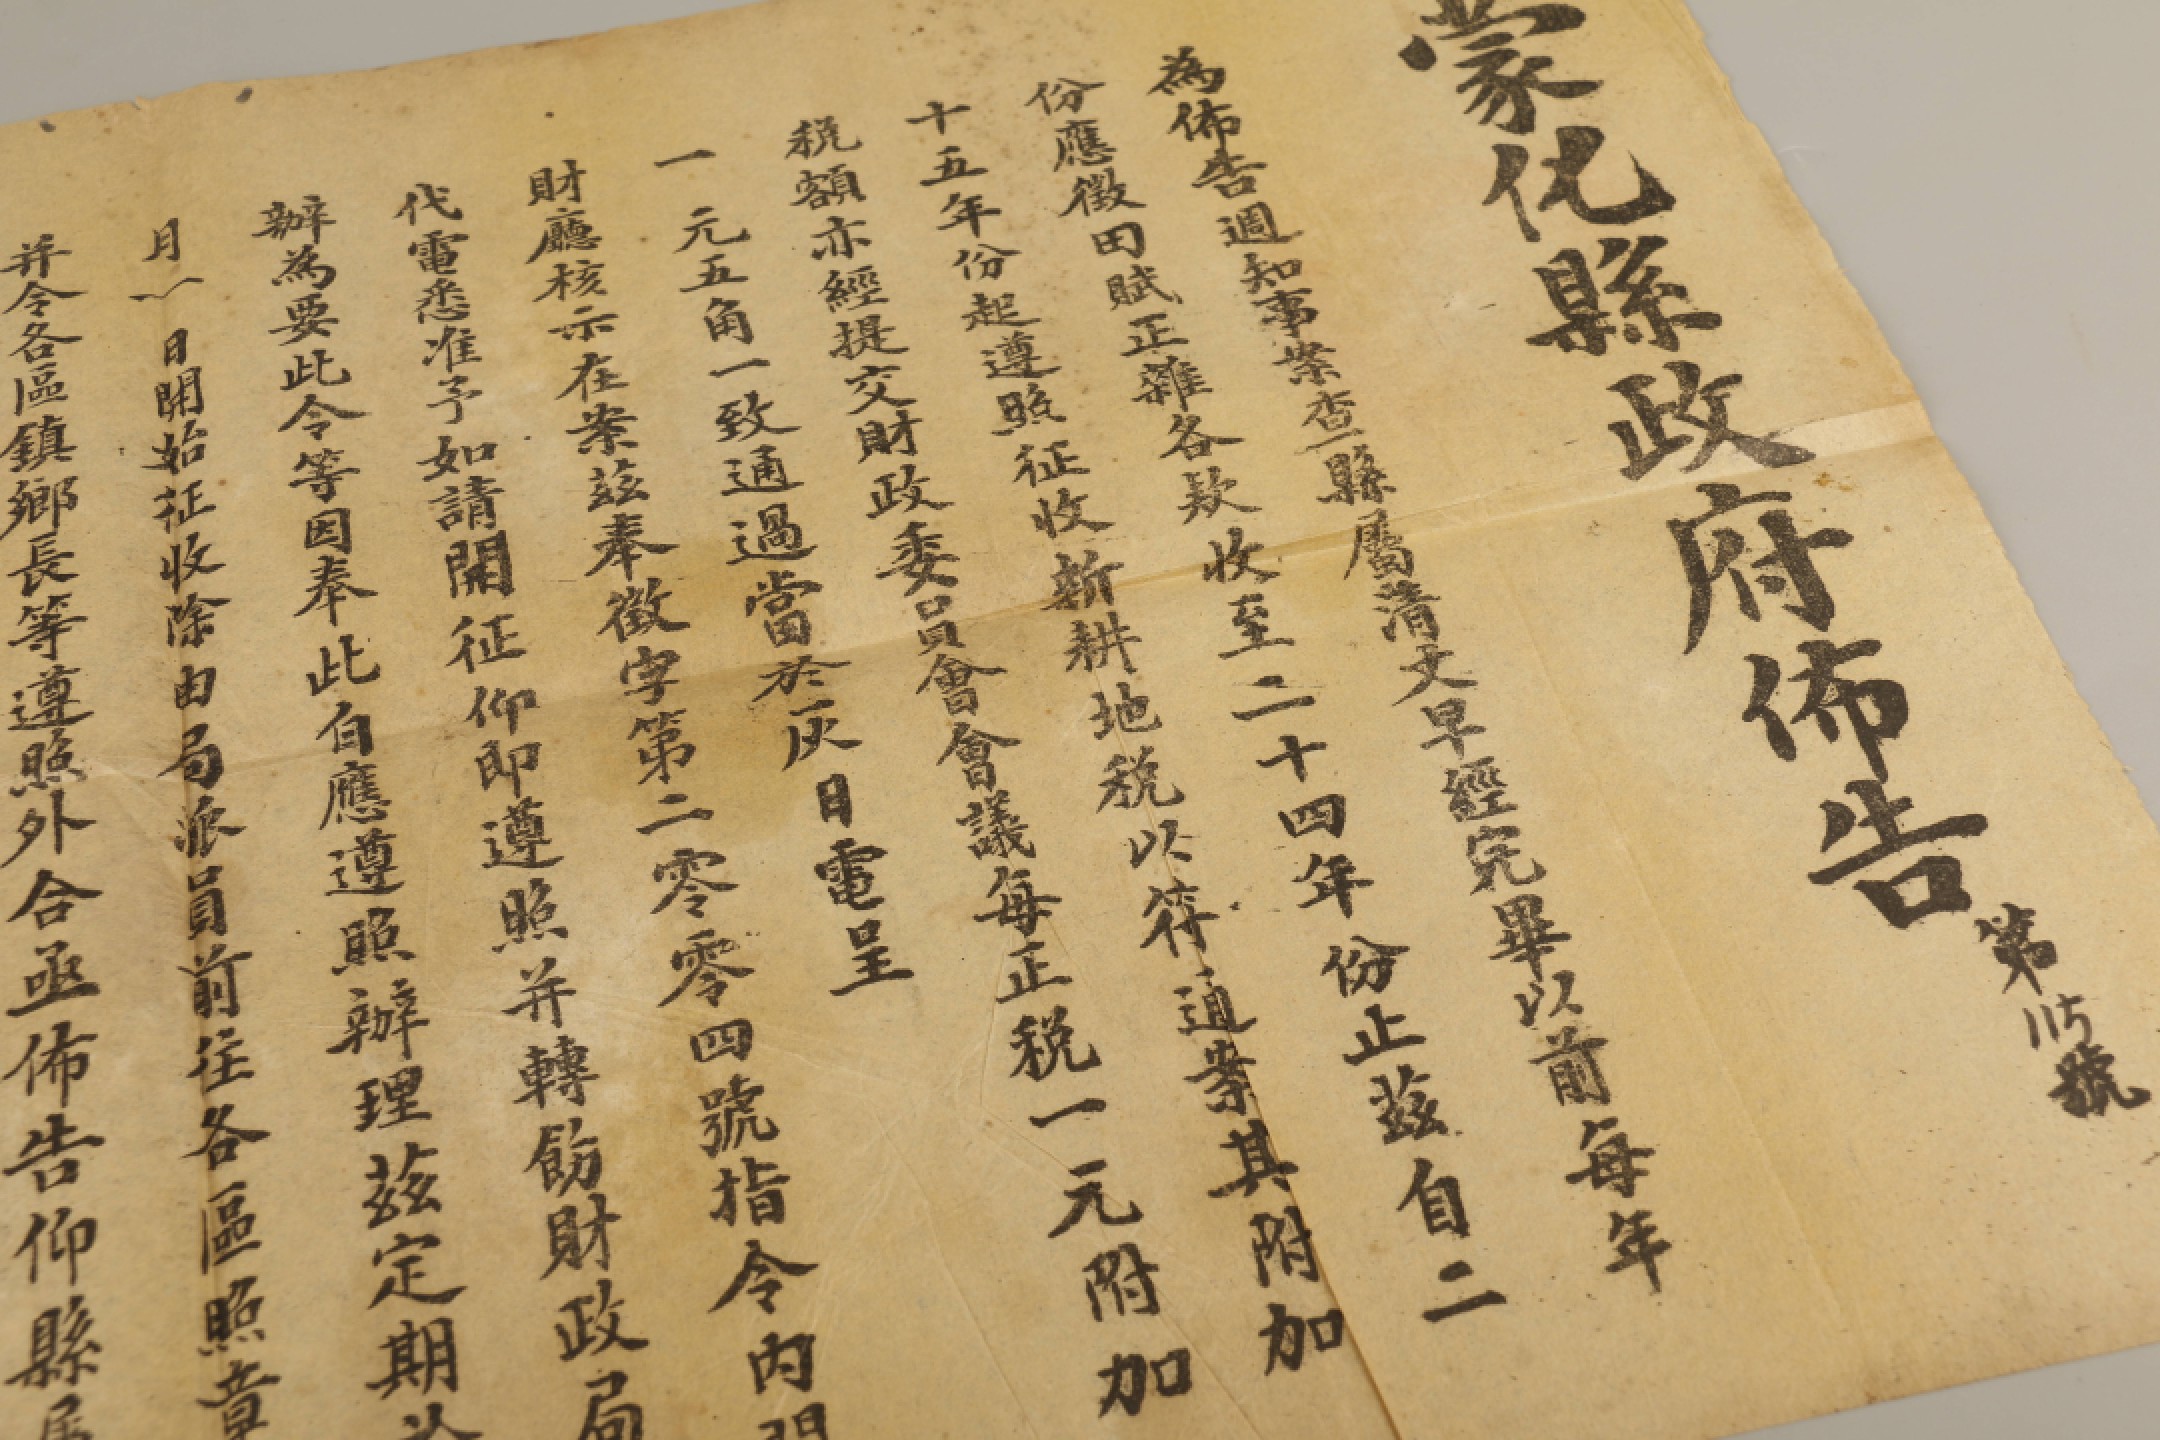 蒙化縣政府佈告
第115號
為佈告週知事案查縣屬清丈早經完畢以前每年
份應徵田賦正雜各款收至二十四年份止茲自二
十五年份起遵照征收新耕地稅以符通案其附加
稅額亦經提交財政委員會會議每正稅一元附加
一元五角一致通過當於灰日電呈
財廳核示在案茲奉徵字第二零零四號指令內開
代電悉准予如請開征仰即遵照并轉飭財政局
辦為要此令等因奉此自應遵照辦理茲定期
月 日開始征收除由局派員前往各區照章
并令各區鎮鄉長等遵照外合亟佈告仰縣屬